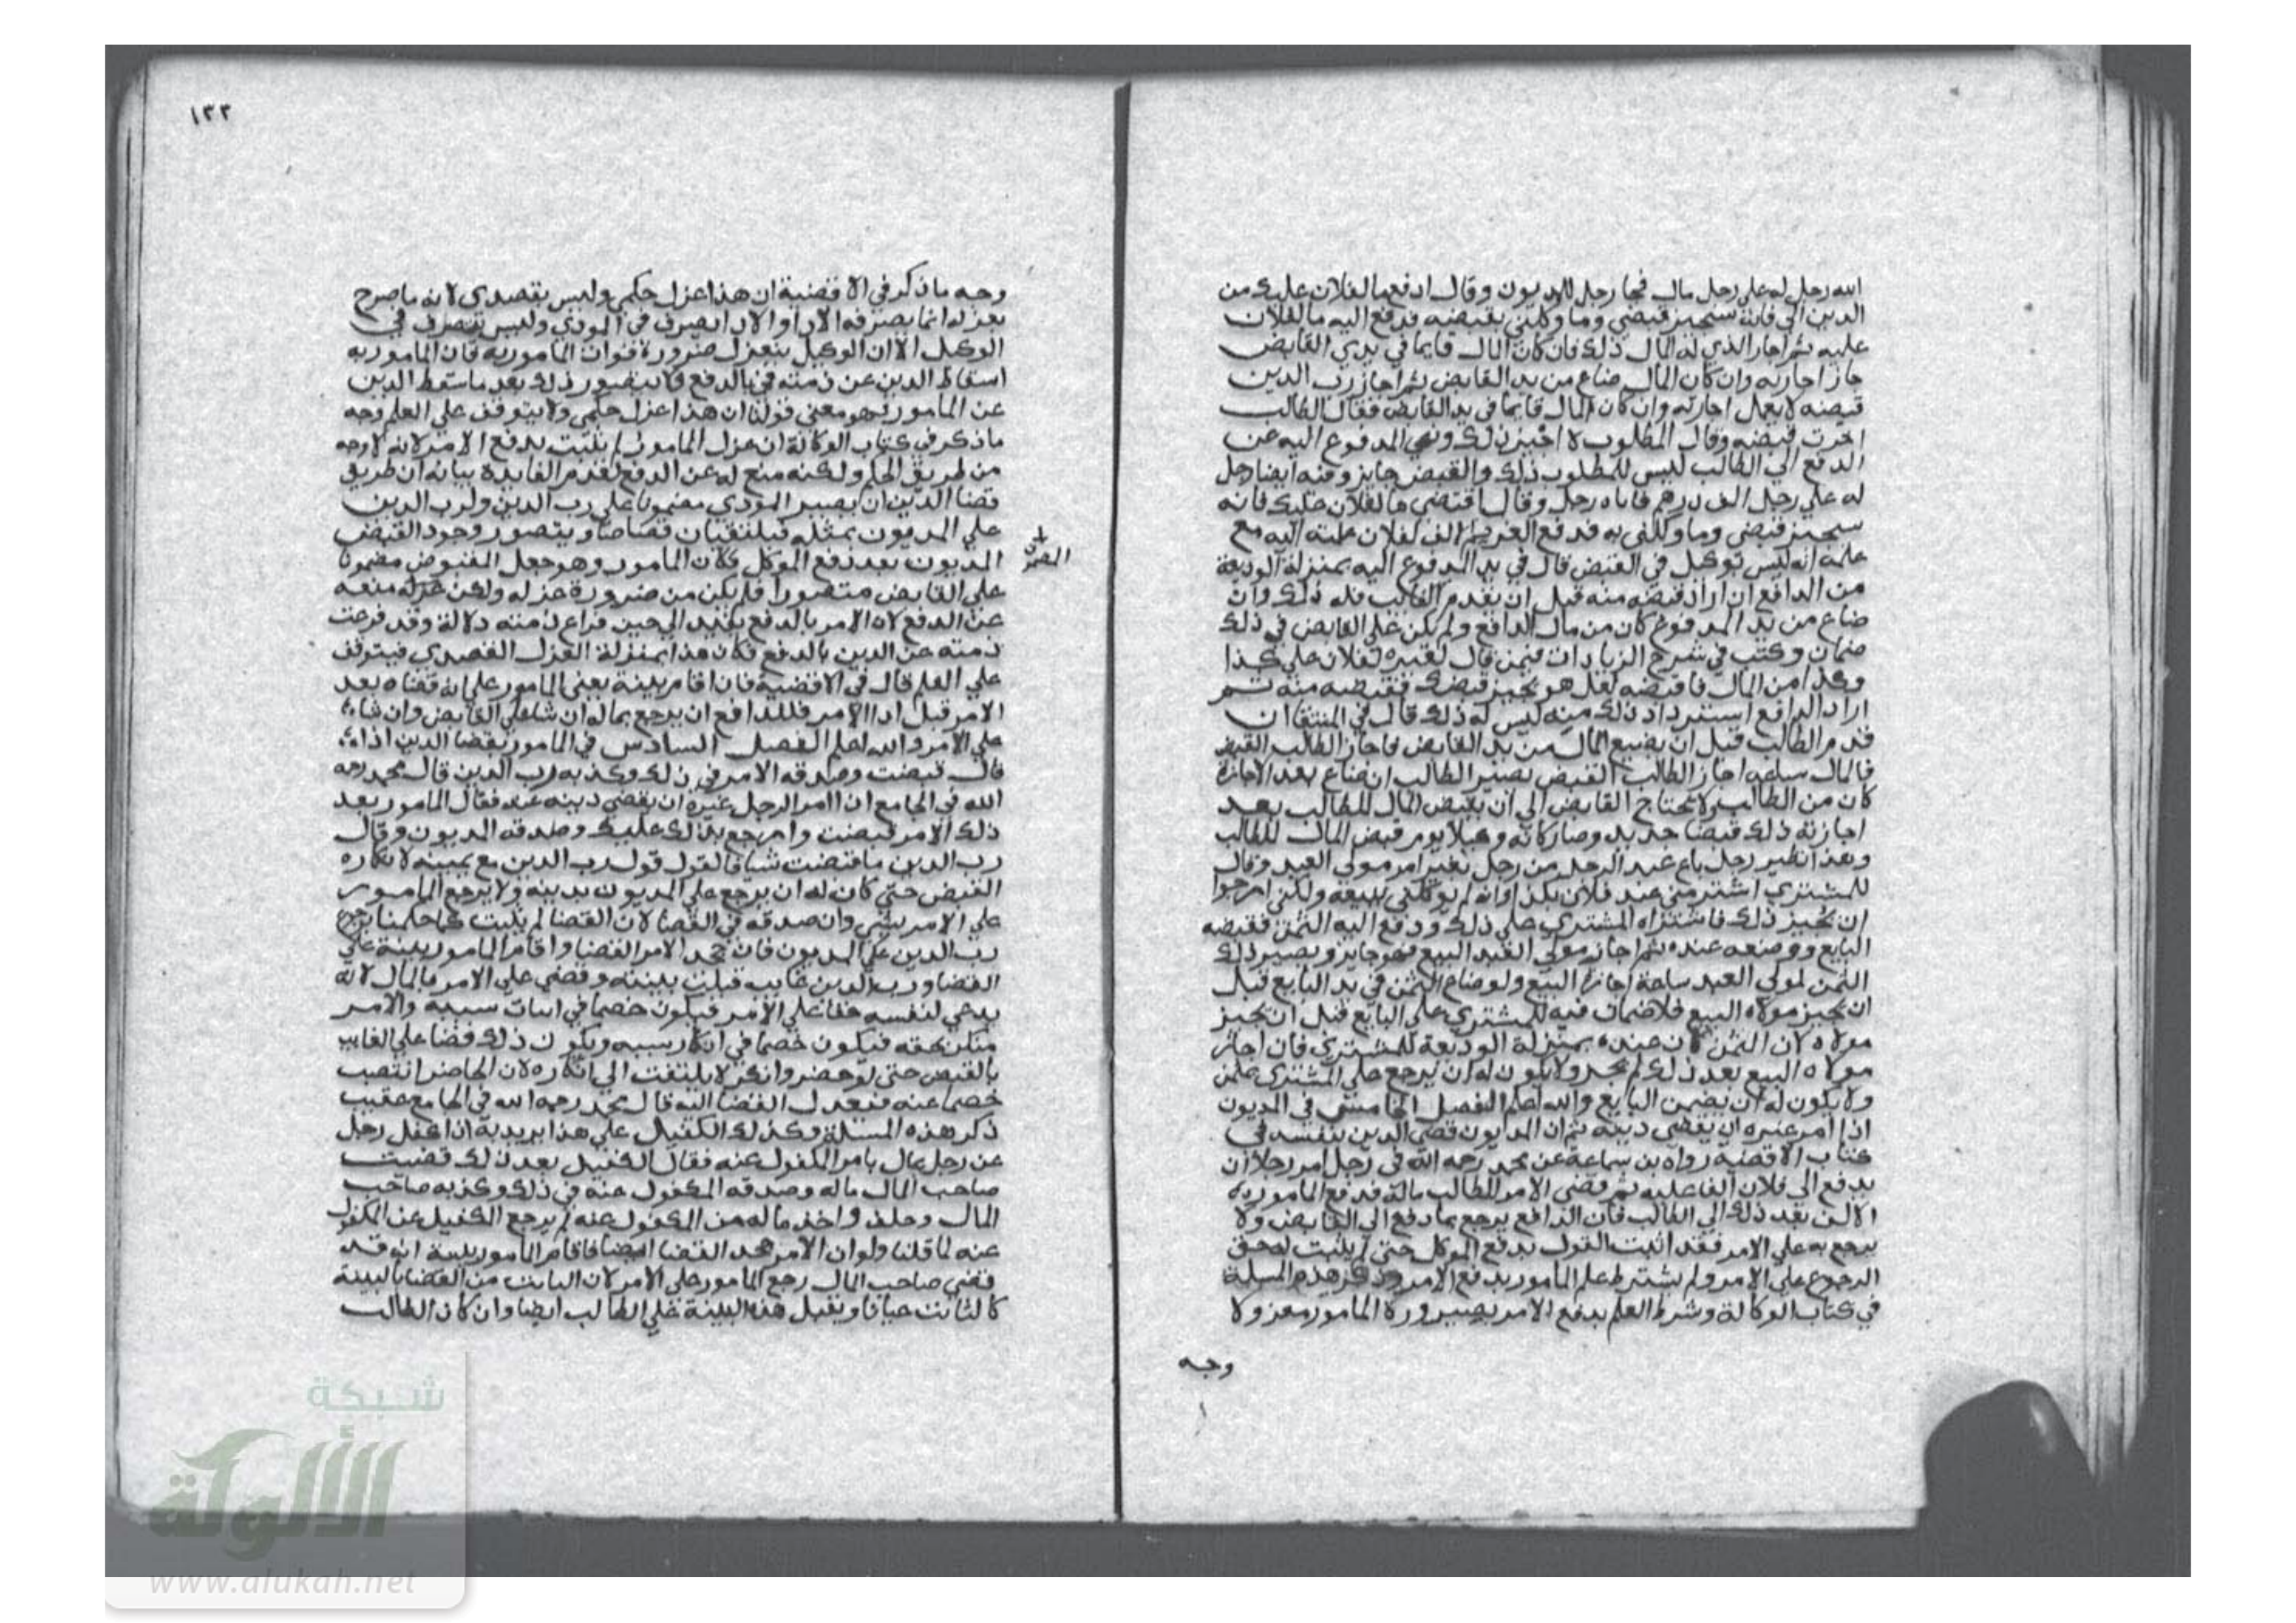 الله رجل له على رجل مال فجا رجل للمديون وقال ادفع ما لفلان عليك من
الدين الي فانه سيجيز قبضي وما وكلني بقبضه فدفع اليه ما لفلان
عليه ثم اجاز الذي له المال ذلك فان كان المال قايما في يدي القابض
جاز اجازته وان كان المال ضاع من يد القابض ثم اجاز رب الدين
قبضه لا يعمل اجازته وان كان المال قايما في يد القابض فقال الطالب
اجزت قبضه وقال المطلوب لا اجيز ذلك ونهي المدفوع اليه عن
الدفع الي الطالب ليس للمطلوب ذلك والقبض جايز وفيه ايضا رجل
له علي رجل الف درهم فاتاه رجل وقال اقتضي ما لفلان عليك فانه
سيجيز قبضي وما وكلني به فدفع الغريم الالف لفلان عليه اليه مع
علمه انه ليس توكيل في القبض قال في يد المدفوع اليه بمنزلة الوديعة
من الدافع ان اراد قبضه منه قبل ان يقدم الطالب فله ذلك وان
ضاع من يد المدفوع كان من مال الدافع ولم يكن علي القابض في ذلك
ضمان وكتب في شرح الزيادات فيمن قال لغيره لفلان علي كذا
وكذا من المال فاقبضه لعل هو يجيز قبضك فقبضه منه ثم
اراد الدافع استرداد ذلك منه ليس له ذلك قال في المنتقا ان
قدم الطالب قبل ان يضيع المال من يد القابض فاجاز الطالب القبض
فالمال ساعة اجاز الطالب القبض يصير الطالب ان ضاع بعد الاجازة
كان من الطالب ولا يحتاج القابض الي ان يقبض المال للطالب بعد
اجازته ذلك قبضا جديد وصار كانه وكيلا يوم قبض المال للطالب
وهذا نظير رجل باع عبد الرجل من رجل بغير امر مولي العبد وقال
للمشتري اشتر مني عبد فلان بكذا وانه لم يوكلني ببيعه ولكن ارجوا
ان يجيز ذلك فاشتراه المشتري علي ذلك ودفع اليه الثمن فقبضه
البايع ووضعه عنده ثم اجاز مولي العبد البيع فهو جايز ويصير ذلك
الثمن لمولي العبد ساعة اجازة البيع ولو ضاع الثمن في يد البايع قبل
ان يجيز مولاه البيع فلا ضمان فيه للمشتري علي البايع قبل ان يجيز
مولاه لان الثمن كان عنده بمنزلة الوديعة للمشتري فان اجاز
مولاه البيع بعد ذلك لم يجز ولا يكون له ان يرجع علي المشتري بثمن
ولا يكون له ان يضمن البايع والله اعلم الفصل الخامس في المديون
اذا امر غيره ان يقضي دينه ثم ان المديون قضي الدين بنفسه في
كتاب الاقضية رواه بن سماعة عن محمد رحمه الله في رجل امر رجلا ان
يدفع الي فلان الفا عليه ثم قضي الامر للطالب ماله فدفع المامور به
الالف بعد ذلك الي الطالب فان الدافع يرجع بما دفع الي القابض ولا
يرجع به علي الامر فقد اثبت القول بدفع الموكل حتي لم يثبت له حق
الرجوع علي الامر ولم يشترط علم المامور بدفع الامر وذكر هذه المسيلة
في كتاب الوكالة وشرط العلم بدفع الامر بصيرورة المامور معزولا
وجه
١٣٢
وجه ما ذكر في الاقضية ان هذا عزل حكمي وليس بقصدي لانه ما صرح
بعزله انما بصرفه الادا والادا تصرف في المودي وليس بتصرف في
الوكيل الا ان الوكيل ينعزل ضرورة فوات المامور به فان المامور به
اسقاط الدين عن ذمته في الدفع فلا يتصور ذلك بعد ما سقط الدين
عن المامور فهو معني قولنا ان هذا عزل حكمي ولا يتوقف علي العلم وجه
ما ذكر في كتاب الوكالة ان عزل المامور لم يثبت بدفع الامر لانه لا وجه
من طريق الحكم ولكنه منع له عن الدفع لعدم الفايدة بيانه ان طريق
قضا الدين ان يصير المودي مضمونا علي رب الدين ولرب الدين
علي المديون بمثله فيلتقيان قصاصا ويتصور وجود القبض
المديون بعد دفع الموكل فكان المامور وهو جعل المقبوض مضمونا
علي القابض متصورا فلم يكن من ضرورة عزله ولكن عزله منعه
عن الدفع لان الامر بالدفع يتقيد الي حين فراع ذمته دلالة وقد فرغت
ذمته عن الدين بالدفع فكان هذا بمنزلة العزل القصدي فيتوقف
علي العلم قال في الاقضية فان اقام بينة يعني المامور علي انه قضاه بعد
الامر قبل ادا الامر فللدافع ان يرجع بماله ان شا علي القابض وان شا
علي الامر والله اعلم الفصل السادس في المامور بقضا الدين اذا
قال قبضت وصدقه الامر في ذلك وكذبه رب الدين قال محمد رحمه
الله في الجامع اذا امر الرجل غيره ان يقضي دينه عنه فقال المامور بعد
ذلك الامر قبضت وارجع بذلك عليك وصدقه المديون وقال
رب الدين ما قبضت شيا فالقول قول رب الدين مع يمينه لانكاره
القبض حتي كان له ان يرجع علي المديون بدينه ولا يرجع المامور
علي الامر بشي وان صدقه في القضا لان القضا لم يثبت لما حكمنا برجوع
رب الدين علي المديون فان جحد الامر القضا واقام المامور بينة علي
القضا ورب الدين غايب قبلت بينته وقضي علي الامر بالمال لانه
يدعي لنفسه حقا علي الامر فيكون خصما في اثبات سببه والامر
منكر حقه فيكون خصما في انكار سببه ويكون ذلك قضا علي الغايب
بالقبض حتي لو حضر وانكر لا يلتفت الي انكاره لان الحاضر انتصب
خصما عنه فتعدي القضا اليه قال محمد رحمه الله في الجامع عقيب
ذكر هذه المسيلة وكذلك الكفيل علي هذا يريد به اذا كفل رجل
عن رجل بمال بامر المكفول عنه فقال الكفيل بعد ذلك قضيت
صاحب المال ماله وصدقه المكفول عنه في ذلك وكذبه صاحب
المال وحلف واخذ ماله من المكفول عنه لم يرجع الكفيل عن المكفول
عنه لما قلنا ولو ان الامر جحد القضا ايضا فاقام المامور بينة انه قد
قضي صاحب المال رجع المامور علي الامر لان الثابت من القضا بالبينة
كالثابت عيانا ويقبل هذه البينة علي الطالب ايضا وان كان الطالب
شبكة
الألوكة
www.alukah.net